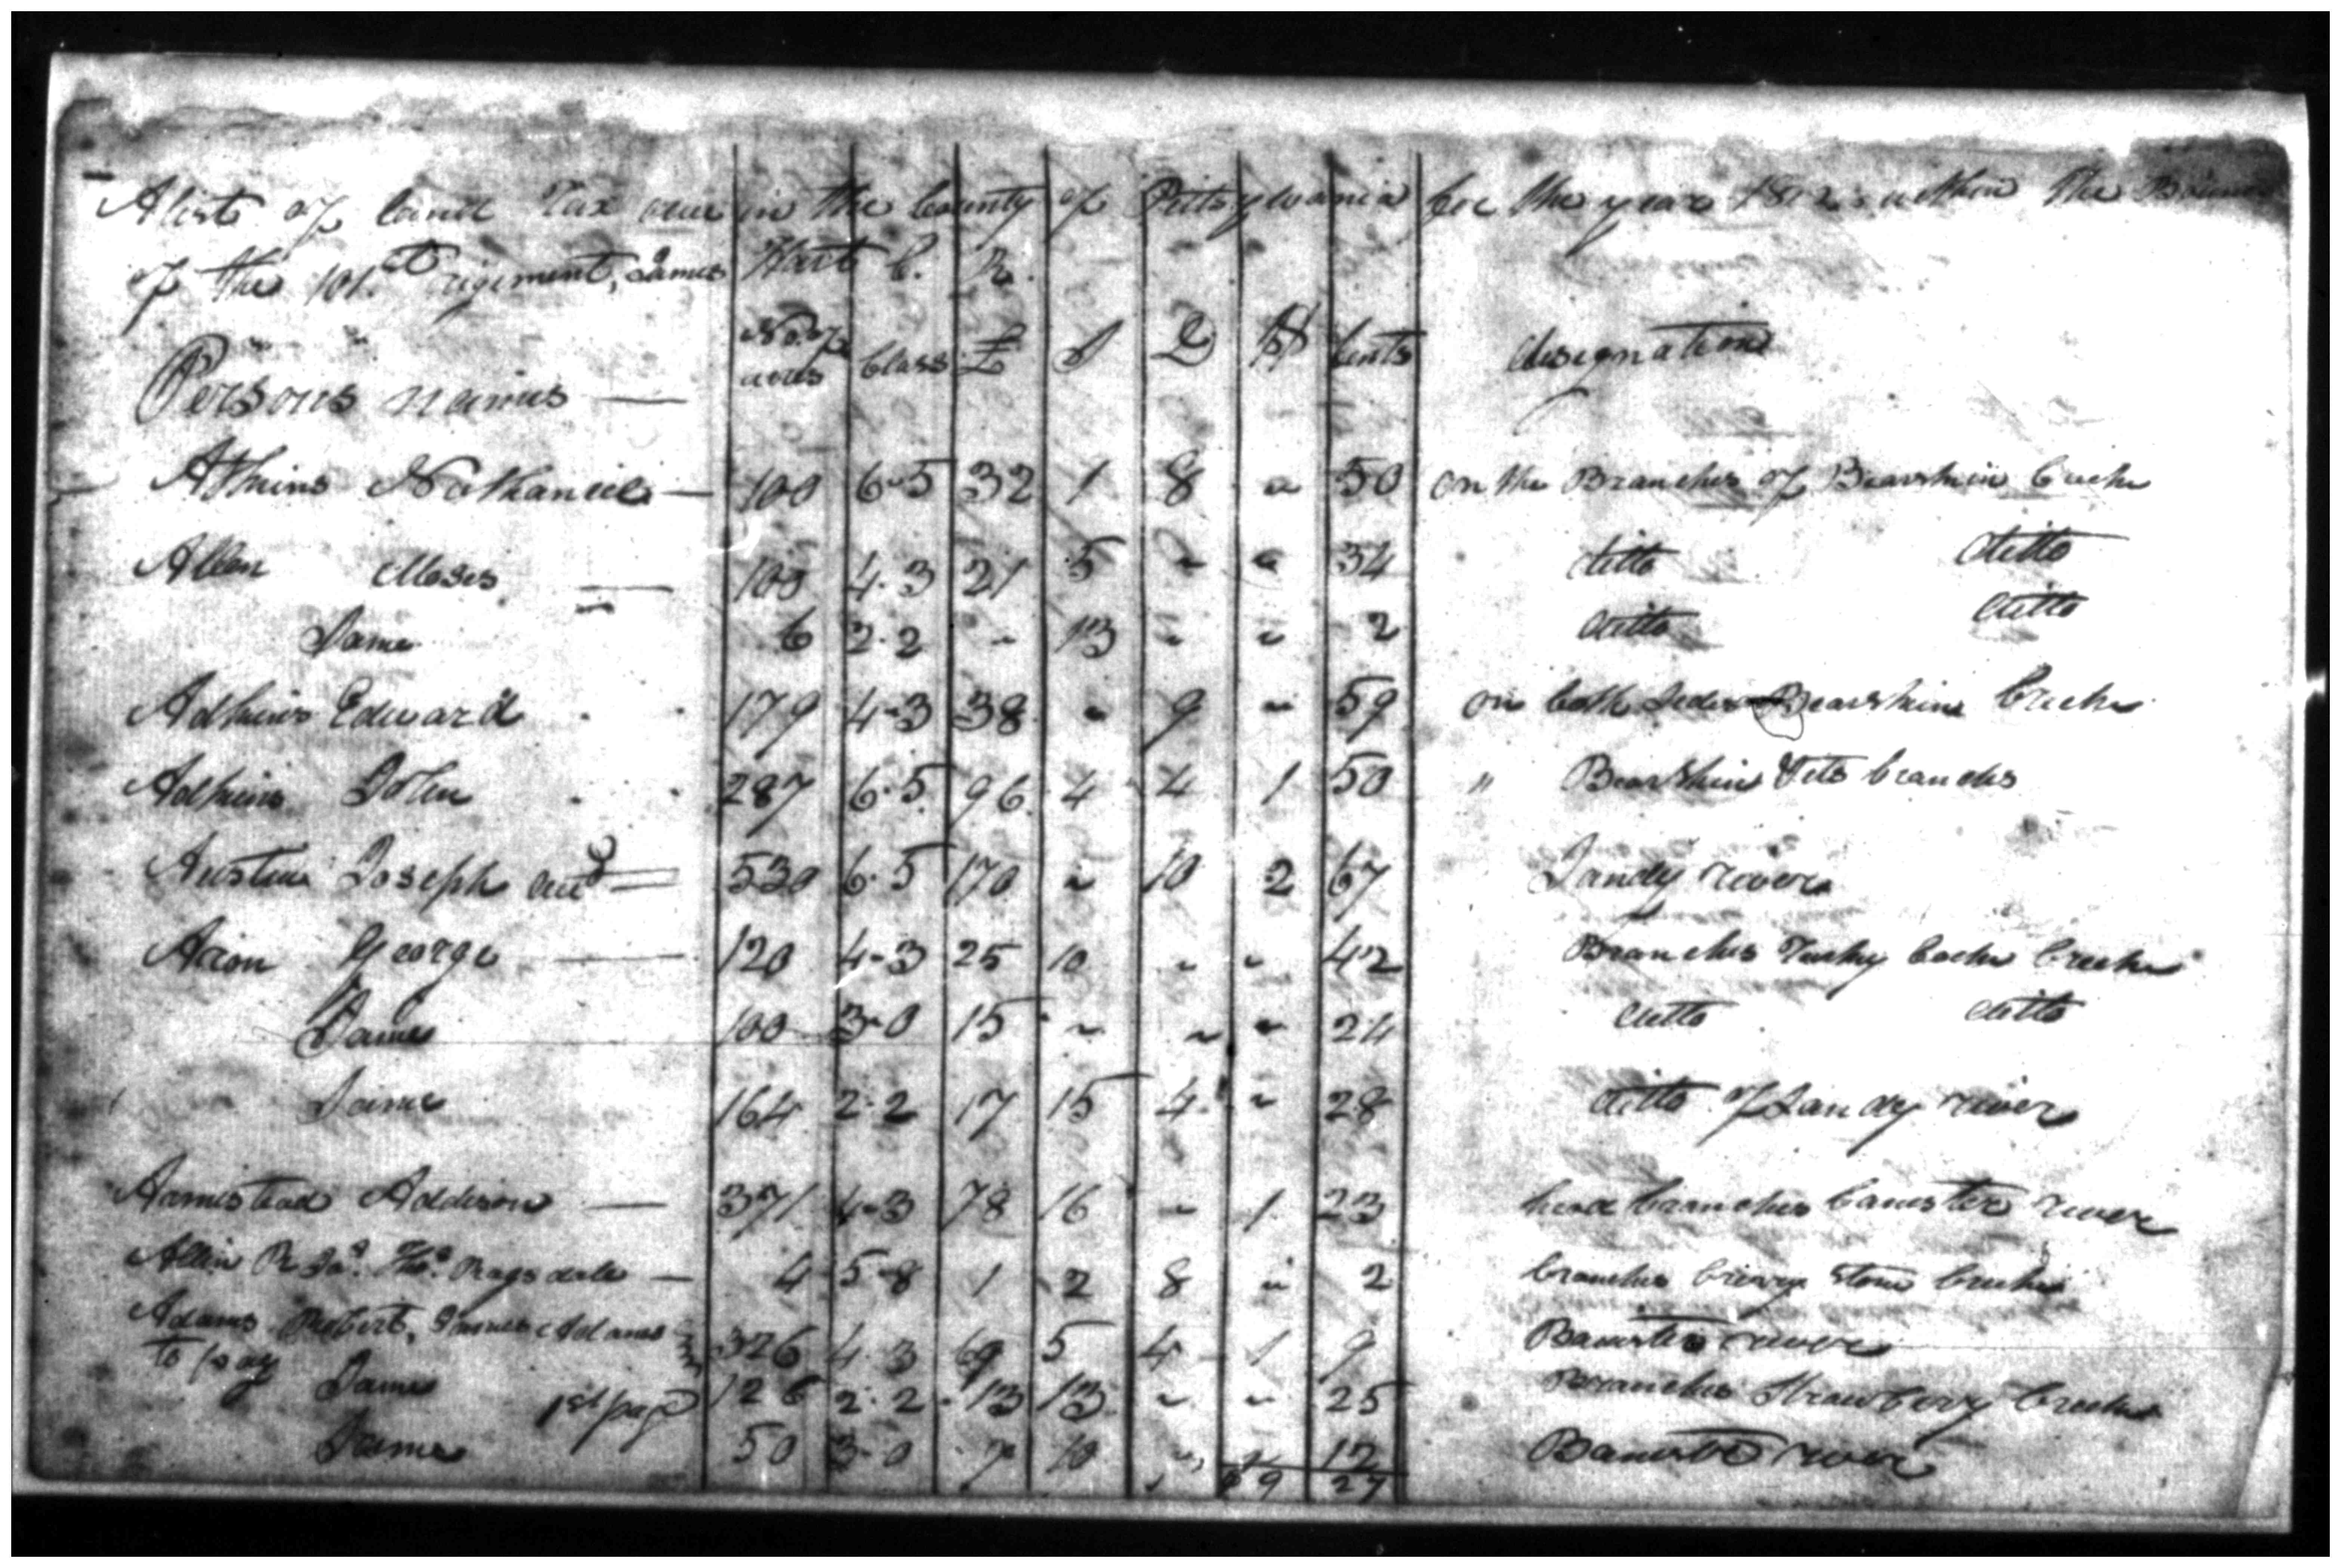 A list of land Tax due in the County of Pittsylvania for the year 1812 within the Bounds
of the 101st regiment, James Hart C. R.
Persons names — No. of acres Class £ S D $ Cents designation
Athkins Nathaniel — 100 6-5 32 1 8 " 50 on the Branches of Bearskin Creek
Allen Moses — 100 4-3 21 5 " " 34 ditto ditto
Same 6 2-2 - 13 " " 2 ditto ditto
Adkins Edward 179 4-3 38 " 9 " 59 on both sides Bearskin Creek
Adkins John 287 6-5 96 4 4 1 50 " Bearskin & its branches
Austin Joseph 530 6-5 170 " 10 2 67 Sandy river
Aron George — 120 4-3 25 10 " " 42 Branches Tusky Creek
Same 100 3-0 15 " " " 24 ditto ditto
Same 164 2-2 17 15 4 " 28 ditto of Sandy river
Aamistead Addison — 371 4-3 78 16 " 1 23 head branches banister river
Allin Ro Jas. Thos. Ragsdale — 4 5-8 1 2 8 " 2 branches stone Creek
Adams Robert, James Adams 326 4-3 69 5 4 1 9 Banister river
to pay Same 1st page 126 2-2 13 13 " " 25 Branches Strawberry Creek
Same 50 3-0 7 10 " " 12 Banister river
$9 27